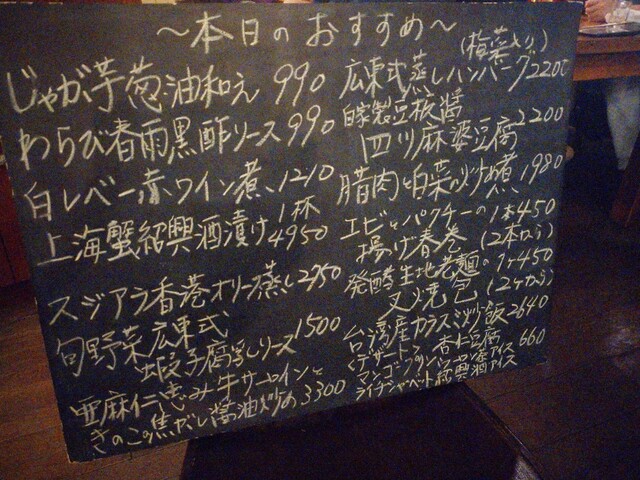 〜本日のおすすめ〜
じゃが芋葱油和え 990
わらび春雨黒酢ソース 990
白レバー赤ワイン煮 1210
上海蟹紹興酒漬け 1杯 4950
スジアラ香港オリー蒸し 2750
旬野菜広東式
蝦子腐乳ソース 1500
亜麻仁志み牛サーロインと
きのこの焦がし醤油炒め 3300
(梅菜入り)
広東式蒸しハンバーグ 2200
自家製豆板醤
四川麻婆豆腐 2200
腊肉と白菜の炒め煮 1980
エビとパクチーの 1本450
揚げ春巻 (2本から)
発酵生地老麺の 1ヶ450
叉焼包 (2ヶから)
台湾産カラスミ炒飯 2640
<デザート> 杏仁豆腐 660
マンゴープリン アイス
ライチシャーベット 紹興酒アイス